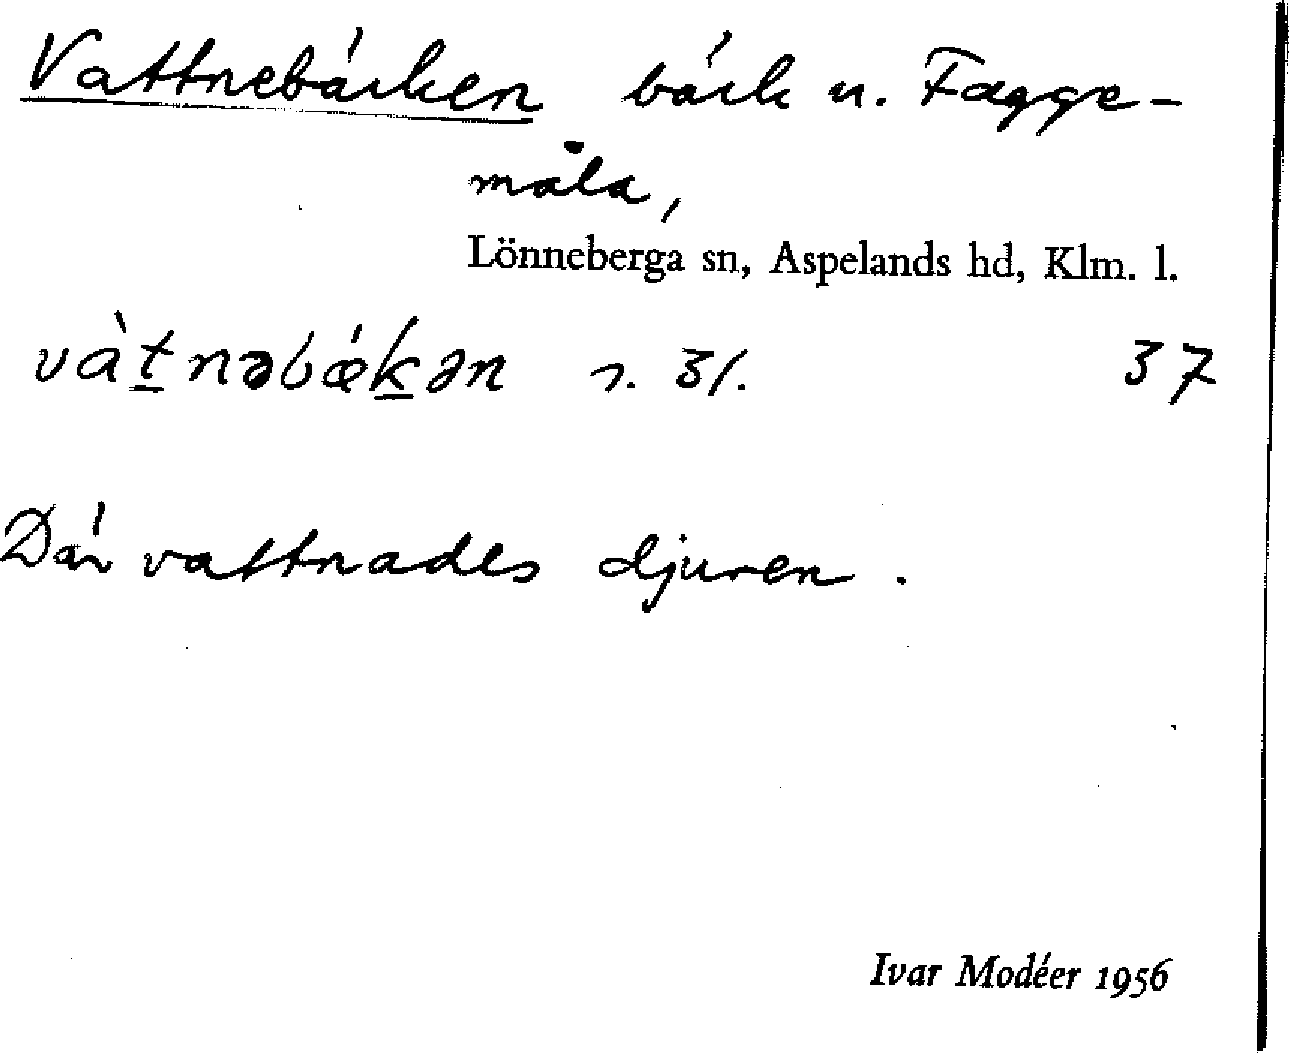 Vattnebäcken bäck u. Fagge-
måla,
Lönneberga sn, Aspelands hd, Klm. l.
vàt̲nəbǽk̲ən 37
Där vattnades djuren.
Ivar Modéer 1956